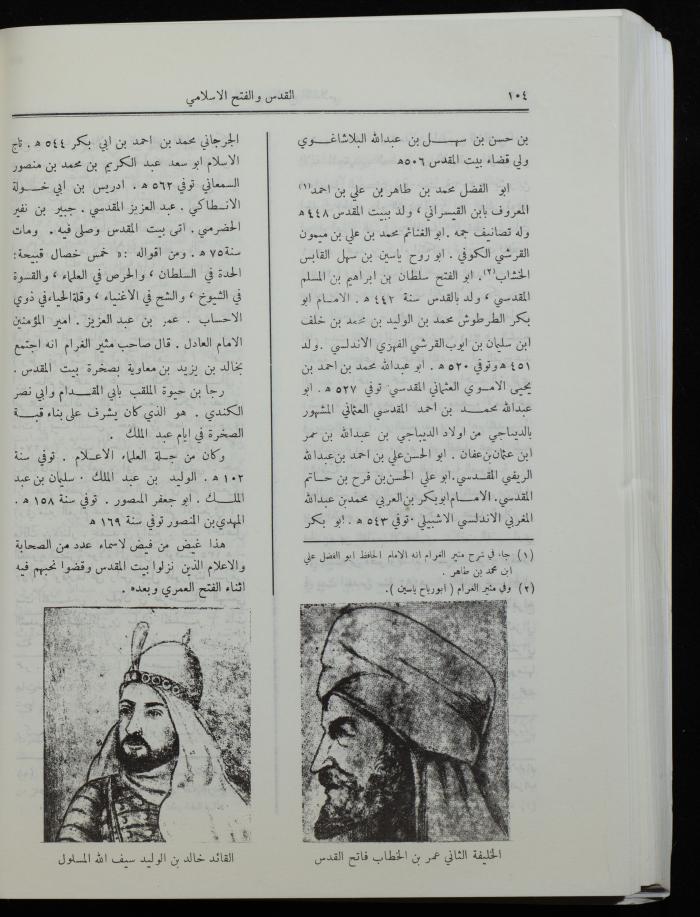 ١٠٤
القدس والفتح الاسلامي
بن حسن بن سهل بن عبدالله البلاشاغوي
ولي قضاء بيت المقدس ٥٠٦ه
ابو الفضل محمد بن طاهر بن علي بن احمد(١)
المعروف بابن القيسراني ، ولد ببيت المقدس ٤٤٨ ه
وله تصانيف جمه . ابو الغنائم محمد بن علي بن ميمون
القرشي الكوفي . ابو روح ياسين بن سهل القابس
الخشاب(٢). ابو الفتح سلطان بن ابراهيم بن المسلم
المقدسي ، ولد بالقدس سنة ٤٤٢ ه . الامام ابو
بكر الطرطوش محمد بن الوليد بن محمد بن خلف
ابن سليمان بن ايوب القرشي الفهزي الاندلسي . ولد
٤٥١ ه وتوفي ٥٢٠ ه . ابو عبدالله محمد بن احمد بن
يحيى الاموي العثماني المقدسي توفي ٥٢٧ ه . ابو
عبدالله محمد بن احمد المقدسي العثماني المشهور
بالديباجي من اولاد الديباجي بن عبدالله بن سمر
ابن عثمان بن عفان . ابو الحسن علي بن احمد بن عبدالله
الريفي المقدسي . ابو علي الحسن بن فرح بن حاتم
المقدسي . الامام ابو بكر بن العربي محمد بن عبدالله
المغربي الاندلسي الاشبيلي . توفي ٥٤٣ ه . ابو بكر
(١) جاء في شرح مثير الغرام انه الامام الحافظ ابو الفضل علي
ابن محمد بن طاهر .
(٢) وفي مثير الغرام ( ابورباح ياسين ) .
الخليفة الثاني عمر بن الخطاب فاتح القدس
الجرجاني محمد بن احمد بن ابي بكر ٥٤٤ ه . تاج
الاسلام ابو سعد عبد الكريم بن محمد بن منصور
السمعاني توفي ٥٦٢ ه . ادريس بن ابي خولة
الانطاكي . عبد العزيز المقدسي . جبير بن نفير
الحضرمي . اتى بيت المقدس وصلى فيه . ومات
سنة ٧٥ ه . ومن اقواله : « خمس خصال قبيحة :
الحدة في السلطان ، والحرص في العلماء ، والقسوة
في الشيوخ ، والشح في الاغنياء ، وقلة الحياء في ذوي
الاحساب . عمر بن عبد العزيز . امير المؤمنين
الامام العادل . قال صاحب مثير الغرام انه اجتمع
بخالد بن يزيد بن معاوية بصخرة بيت المقدس .
رجا بن حيوة الملقب بابي المقدام وابي نصر
الكندي . هو الذي كان يشرف على بناء قبة
الصخرة في ايام عبد الملك .
وكان من جلة العلماء الاعلام . توفي سنة
١٠٢ ه . الوليد بن عبد الملك . سليمان بن عبد
الملك . ابو جعفر المنصور . توفي سنة ١٥٨ ه .
المهدي بن المنصور توفي سنة ١٦٩ ه
هذا غيض من فيض لاسماء عدد من الصحابة
والاعلام الذين نزلوا بيت المقدس وقضوا نحبهم فيه
اثناء الفتح العمري وبعده .
القائد خالد بن الوليد سيف الله المسلول